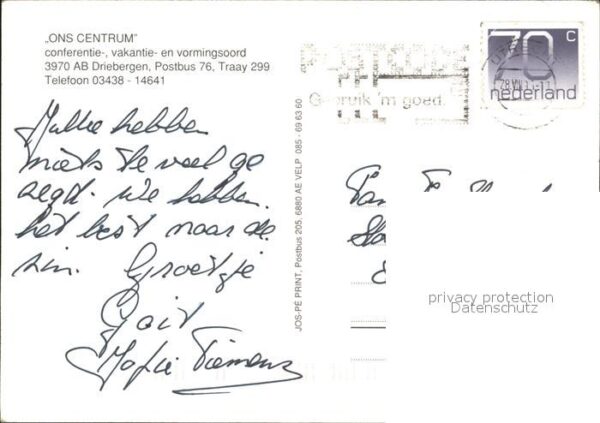 „ONS CENTRUM"
conferentie-, vakantie- en vormingsoord
3970 AB Driebergen, Postbus 76, Traay 299
Telefoon 03438 - 14641
Jullie hebben
niets te veel ge
zegd. We hebben
het best naar de
zin. Groetjie
Gait
JOS-PÉ PRINT, Postbus 205, 6880 AE VELP 085 - 69 63 60
POSTCODE
Gebruik 'm goed.
70 c
nederland
Fam
privacy protection
Datenschutz